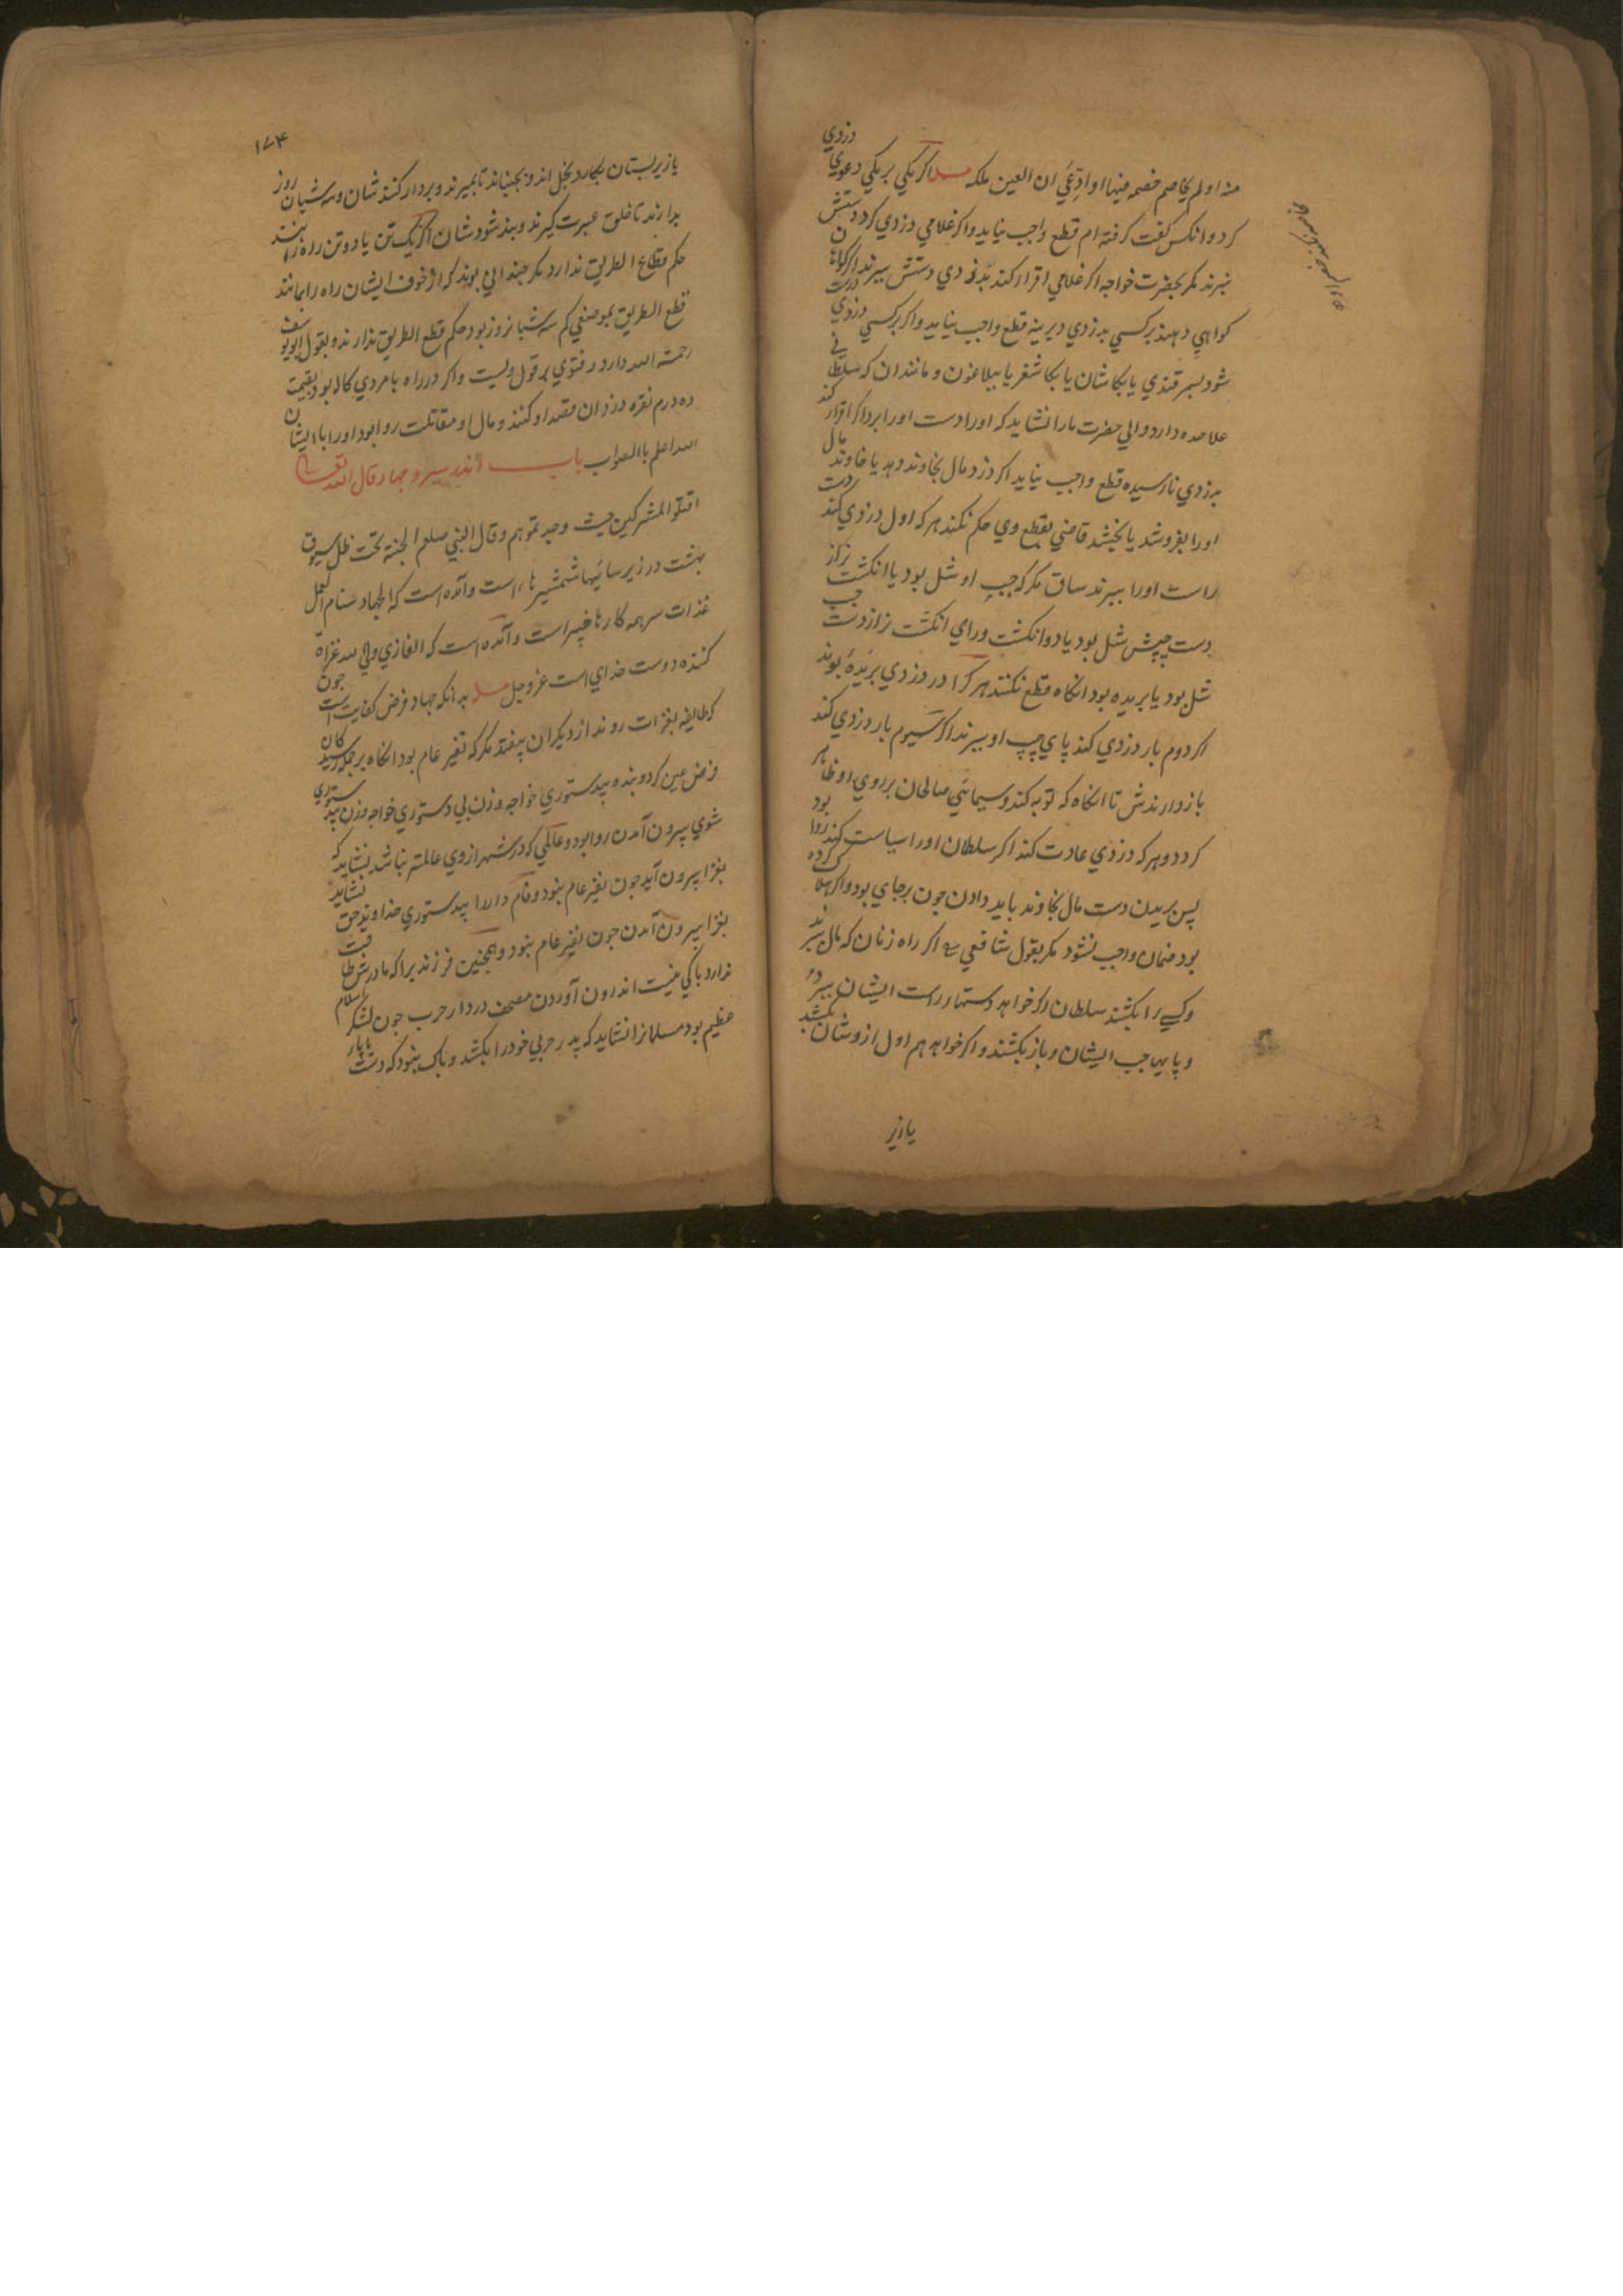 منه او لم يخاصم خصمه فيها او ادّعي ان العين ملكه مسله اكر يكي بر يكي دعوي دزدي
كرد و انكس كفت كرفته ام قطع واجب نيايد و اكر غلامي دزدي كرد دستش
نبرند مكر بحضرت خواجه اكر غلامي اقرار كند بدزدي دستش ببرند اكر كواهان
كواهي دهند بر كسي بدزدي ديرينه قطع واجب نيايد و اكر بر كسي دزدي درست
شود بسمرقندي يا بكاشان يا بكاشغر يا ببلاغون و مانند ان كه سلطاني
علاحده دارد والي حضرت ما را نشايد كه او را دست او را برد اكر اقرار كند
بدزدي نارسيده قطع واجب نيايد اكر دزد مال بخاوند دهد يا خاوند مال
او را بفروشد يا بخشد قاضي بقطع وي حكم نكند هر كه اول دزدي كند دست
راست او را ببرند ساق مكر كه چپ او شل بود يا انكشت نراز
دست چپش شل بود يا دو انكشت وراي انكشت نر از دست چپ
شل بود يا بريده بود انكاه قطع نكنند هر كرا در دزدي بريده بوند
اكر دوم بار دزدي كند پاي چپ او ببرند اكر سيوم بار دزدي كند
باز دارندش تا انكاه كه توبه كند و سيماي صالحان بر روي او ظاهر
كردد و هر كه دزدي عادت كند اكر سلطان او را سياست كند روا بود
پس بريدن دست مال بخاوند بايد دادن چون بر جاي بود و اكر هلاك كرده
بود ضمان واجب نشود مكر بقول شافعي اكر راه زنان كه مال برند
و كسي را بكشند سلطان اكر خواهد دستها راست ايشان ببرد
و پايها چپ ايشان و باز بكشند و اكر خواهد هم اول از وشان بكشد
يا زير
١٧٤
يا زير پستان بكارد بخل اند و بجنباند تا بميرند و بر دار كنند شان و سه شبان روز
بدارند تا خلق عبرت كيرند و بند شود شان اكر يك تن يا دو تن ره زنند
حكم قطاع الطريق ندارد مكر چنداني بوند كه از خوف ايشان راه را بمانند
قطع الطريق بموضعي كم سه شبانروز بود حكم قطع الطريق ندارند و بقول ابو يوسف
رحمته الله دارد و فتوي بر قول ويست و اكر در راه با مردي كاله بود بقيمت
ده درم نقره دزدان قصد او كنند و مال او مقاتلت روا بود او را با ايشان
الله اعلم باالصواب باب اندر سير و جهاد قال الله تعالي
اقتلوا المشركين حيث وجدتموهم و قال النبي صلعم الجنة تحت ظل سيوف
بهشت در زير سايهاشمشيرها است و آمده است كه الجهاد سنام العمل
غذات سر همه كارها خير است و آمده است كه الغازي ولي الله غزاة
كننده دوست خداي است عز و جل مسله بدانكه جهاد فرض كفايت است چون
كه طايفه بغزات روند از ديكران بيفتد مكر كه نفير عام بود انكاه بر همكان
فرض عين كردد بنده بيدستوري خواجه و زن بي دستوري خواجه و زن بيدستوري
شوي بيرون آمدن روا بود و عالمي كه در شهر از وي عالمتر نباشد نشايد كه
بغزا بيرون آيد چون نفير عام نبود و فام دار را بيدستوري خداوند حق نشايد
بغزا بيرون آمدن چون نفير عام نبود و همچنين فرزند برا كه مادرش طاقت
ندارد باكي نيست اندرون آوردن مصحف در دار حرب چون لشكر اسلام
عظيم بود مسلمانرا نشايد كه پدر حربي خود را بكشد و باك نبود كه دست يا پاي